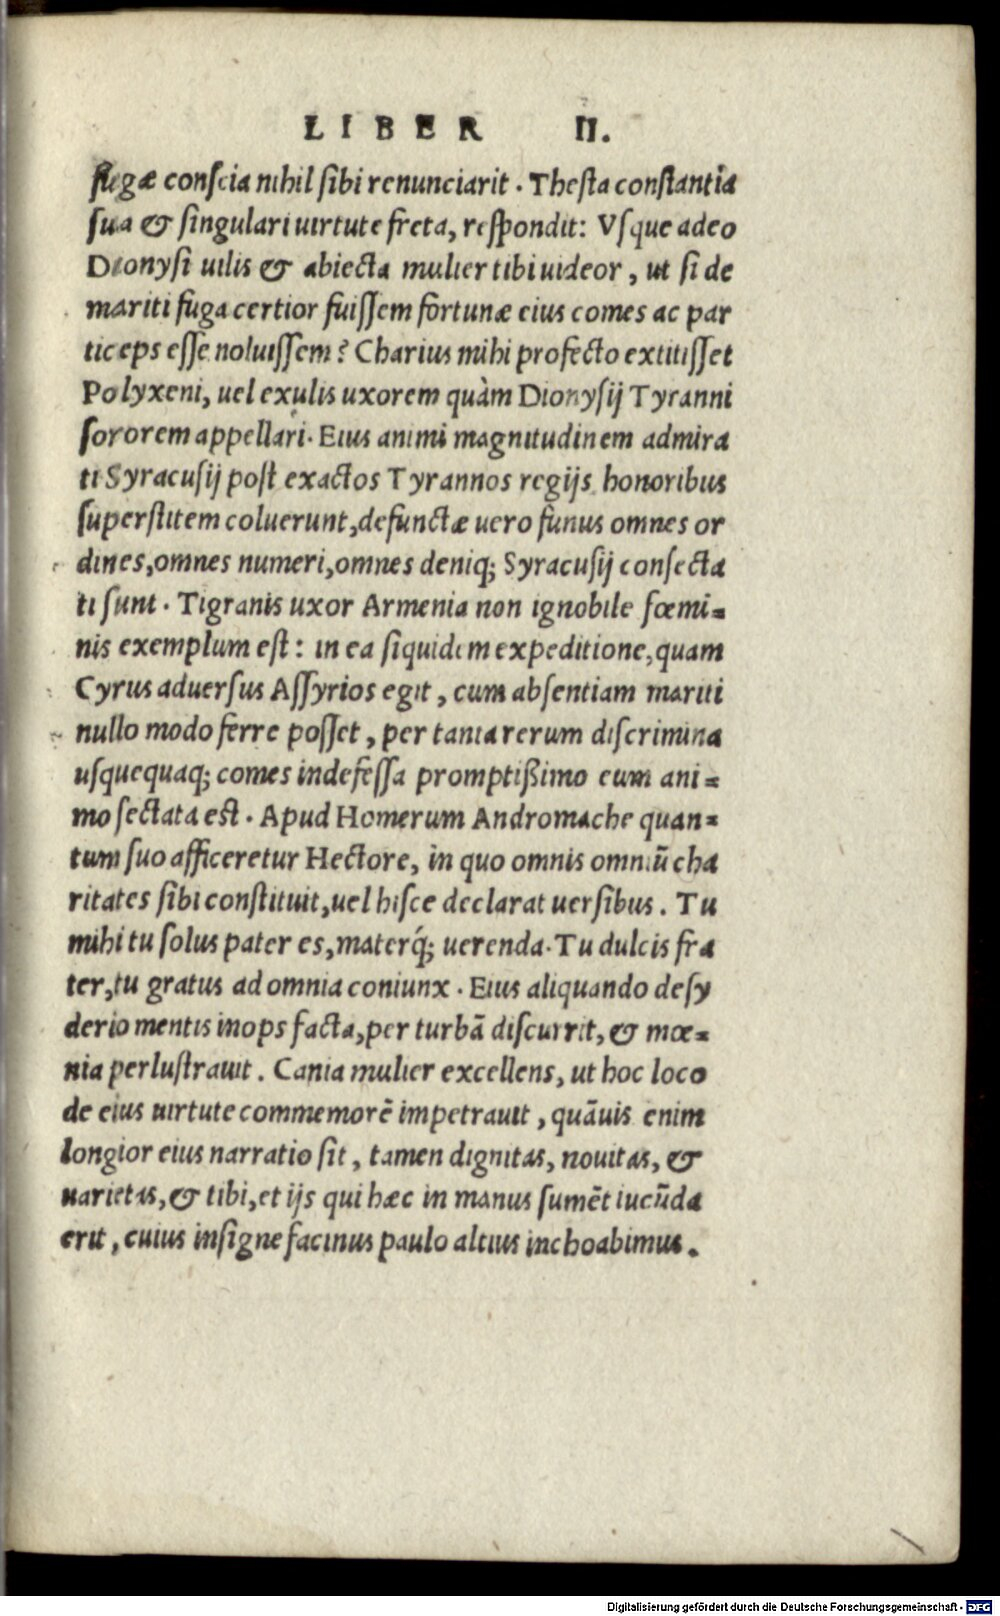 LIBER II.
fugæ conscia nihil sibi renunciarit. Thesta constantia
sua & singulari uirtute freta, respondit: Vsque adeo
Dionysi uilis & abiecta mulier tibi uideor, ut si de
mariti fuga certior fuissem fortunæ eius comes ac par
ticeps esse noluissem? Charius mihi profecto extitisset
Polyxeni, uel exulis uxorem quàm Dionysij Tyranni
sororem appellari. Eius animi magnitudinem admira
ti Syracusij post exactos Tyrannos regijs honoribus
superstitem coluerunt, defunctæ uero funus omnes or
dines, omnes numeri, omnes deniq; Syracusij consecta
ti sunt. Tigranis uxor Armenia non ignobile fœmi=
nis exemplum est: in ea siquidem expeditione, quam
Cyrus aduersus Assyrios egit, cum absentiam mariti
nullo modo ferre posset, per tanta rerum discrimina
usquequaq; comes indefessa promptißimo eum ani=
mo sectata est. Apud Homerum Andromache quan=
tum suo afficeretur Hectore, in quo omnis omniū cha
ritates sibi constituit, uel hisce declarat uersibus. Tu
mihi tu solus pater es, materq́; uerenda. Tu dulcis fra
ter, tu gratus ad omnia coniunx. Eius aliquando desy
derio mentis inops facta, per turbā discurrit, & mœ=
nia perlustrauit. Cania mulier excellens, ut hoc loco
de eius uirtute commemorē impetrauit, quāuis enim
longior eius narratio sit, tamen dignitas, nouitas, &
uarietas, & tibi, et ijs qui hæc in manus sumēt iucūda
erit, cuius insigne facinus paulo altius inchoabimus.
Digitalisierung gefördert durch die Deutsche Forschungsgemeinschaft - DFG